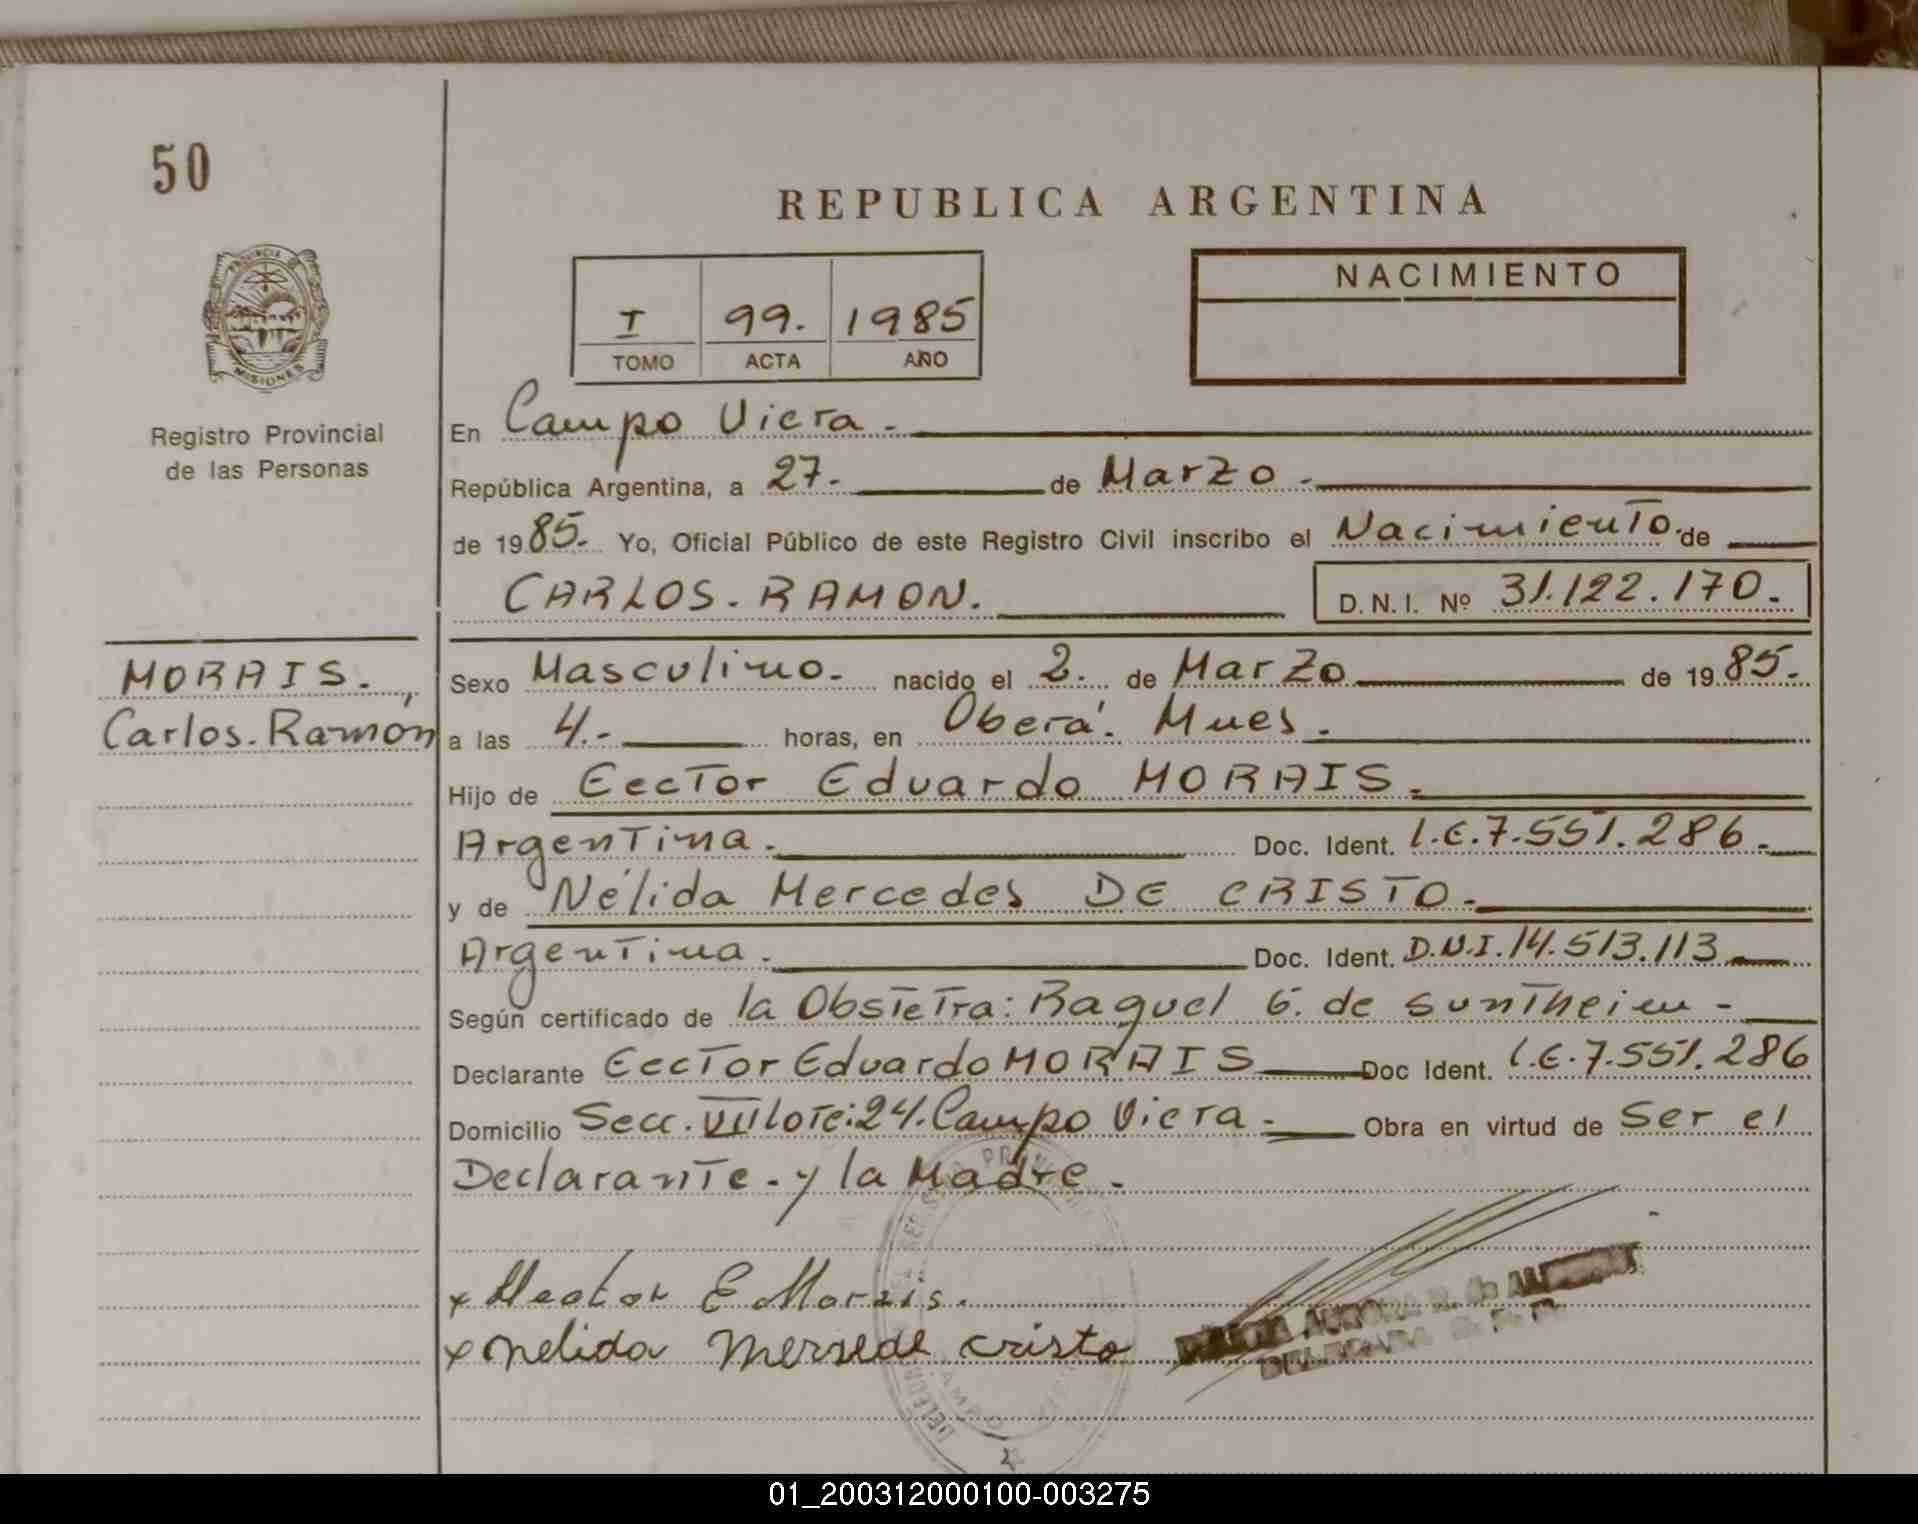 50
REPUBLICA ARGENTINA
PROVINCIA DE
MISIONES
Registro Provincial
de las Personas
I 99. 1985
TOMO ACTA AÑO
NACIMIENTO
En Campo Viera.
República Argentina, a 27. de Marzo.
de 1985. Yo, Oficial Público de este Registro Civil inscribo el Nacimiento. de
CARLOS. RAMON. D.N.I. Nº 31.122.170.
MORAIS.,
Carlos. Ramón
Sexo Masculino. nacido el 2. de Marzo de 1985.
a las 4.- horas, en Oberá. Mnes.
Hijo de Eector Eduardo MORAIS.
Argentina. Doc. Ident. L.E.7.551.286.
y de Nélida Mercedes DE CRISTO.
Argentina. Doc. Ident. D.N.I.14.513.113
Según certificado de la Obstetra: Raquel G. de Suntheim -
Declarante Eector Eduardo MORAIS Doc Ident. L.E.7.551.286
Domicilio Secc. VIII Lote:24. Campo Viera - Obra en virtud de Ser el
Declarante. y la Madre.
x Hector E Morais.
x Nelida Mersede cristo
AURORA R. de
DELEGADA
01_200312000100-003275